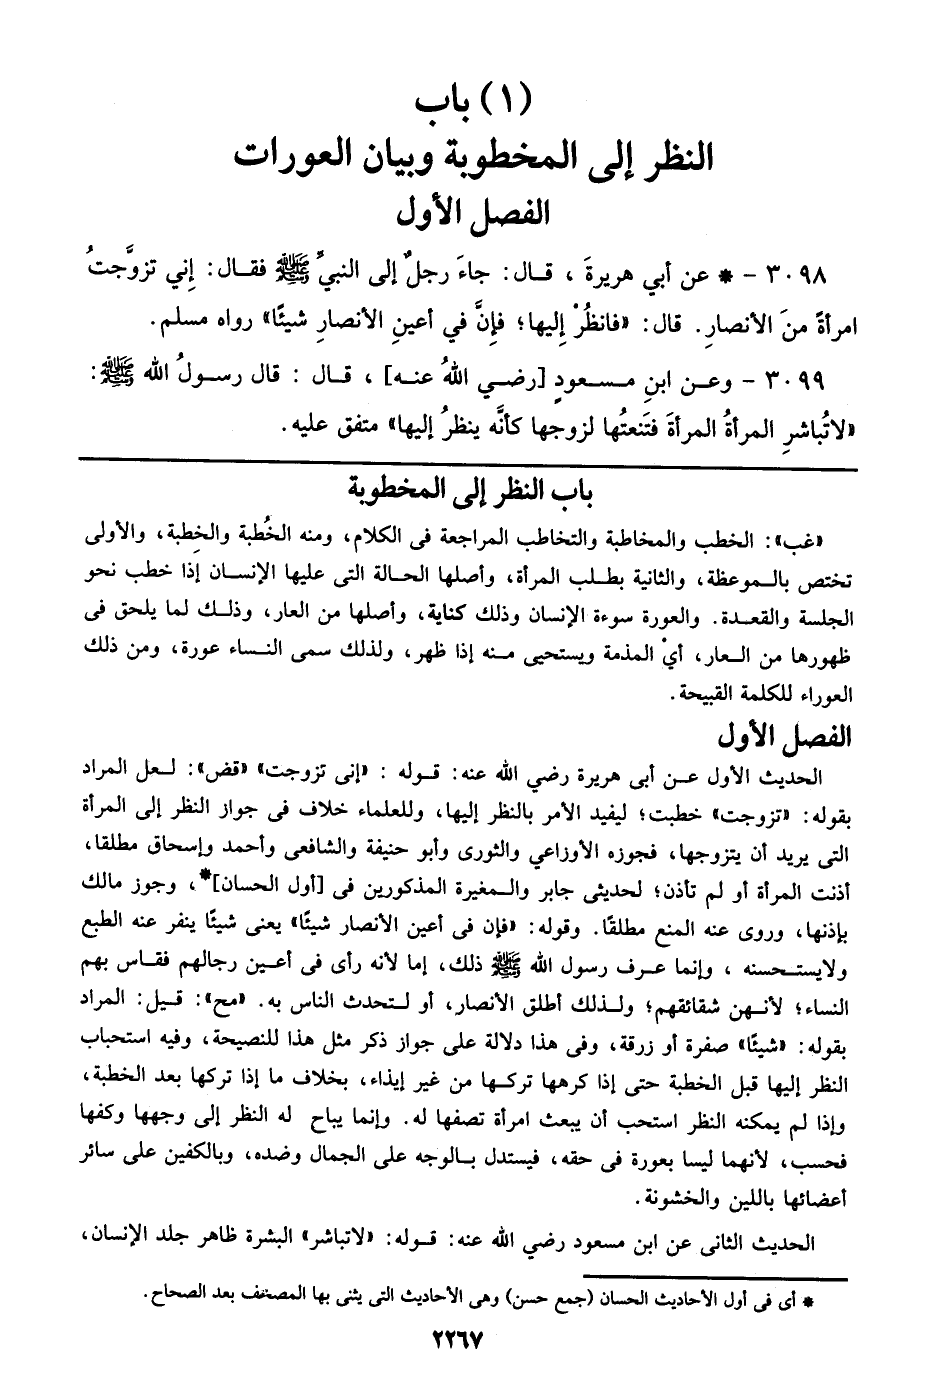 (١) باب
النظر إلى المخطوبة وبيان العورات
الفصل الأول
٣٠٩٨ - * عن أبي هريرةَ ، قـال: جاءَ رجلٌ إلى النبيِّ ﷺ فقـال: إِني تزوَّجتُ
امرأةً منَ الأنصارِ. قال: «فانظُرْ إِليها؛ فإِنَّ في أعينِ الأنصارِ شيئًا» رواه مسلم.
٣٠٩٩ - وعـن ابنِ مـسعودٍ [رضـي اللهُ عنـه] ، قـال : قال رسـولُ الله ﷺ:
«لاتُباشرِ المرأةُ المرأةَ فتَنعتُها لزوجها كأنَّه ينظرُ إليها» متفق عليه.
باب النظر إلى المخطوبة
«غب»: الخطب والمخاطبة والتخاطب المراجعة فى الكلام، ومنه الخُطبة والخِطبة، والأولى
تختص بالـموعظة، والثانية بطلب المرأة، وأصلها الحـالة التى عليها الإنسان إذا خطب نحو
الجلسة والقعـدة. والعورة سوءة الإنسان وذلك كناية، وأصلها من العار، وذلـك لما يلحق فى
ظهورها من الـعار، أيْ المذمة ويستحيى مـنه إذا ظهر، ولذلك سمى النـساء عورة، ومن ذلك
العوراء للكلمة القبيحة.
الفصل الأول
الحديث الأول عـن أبى هريرة رضي الله عنه: قـوله : «إنى تزوجت» «قض»: لـعل المراد
بقوله: «تزوجت» خطبت؛ ليفيد الأمر بالنظر إليها، وللعلماء خلاف فى جواز النظر إلى المرأة
التى يريد أن يتزوجها، فجوزه الأوزاعي والثورى وأبو حنيفة والشافعى وأحمد وإسحاق مطلقا،
أذنت المرأة أو لم تأذن؛ لحديثي جابر والـمغيرة المذكورين فى [أول الحسان]*، وجوز مالك
بإذنها، وروى عنه المنع مطلقًا. وقوله: «فإن فى أعين الأنصار شيئًا» يعنى شيئًا ينفر عنه الطبع
ولايستـحسنه ، وإنما عـرف رسول الله ﷺ ذلك، إما لأنه رأى فى أعـين رجالهم فقـاس بهم
النساء؛ لأنـهن شقائقهم؛ ولـذلك أطلق الأنصار، أو لـتحدث الناس به. «مح»: قـيل: المراد
بقوله: «شيئًا» صفرة أو زرقة، وفى هذا دلالة على جواز ذكر مثل هذا للنصيحة، وفيه استحباب
النظر إليها قبل الخطبة حتى إذا كرهها تركـها من غير إيذاء، بخلاف ما إذا تركها بعد الخطبة،
وإذا لم يمكنه النظر استحب أن يبعث امرأة تصفها له. وإنما يباح له النظر إلى وجهها وكفها
فحسب، لأنهما ليسا بعورة فى حقه، فيستدل بـالوجه على الجمال وضده، وبالكفين على سائر
أعضائها باللين والخشونة.
الحديث الثانى عن ابن مسعود رضي الله عنه: قـوله: «لاتباشر» البشرة ظاهر جلد الإنسان،
* أى فى أول الأحاديث الحسان (جمع حسن) وهى الأحاديث التى يثنى بها المصنف بعد الصحاح.
٢٢٦٧